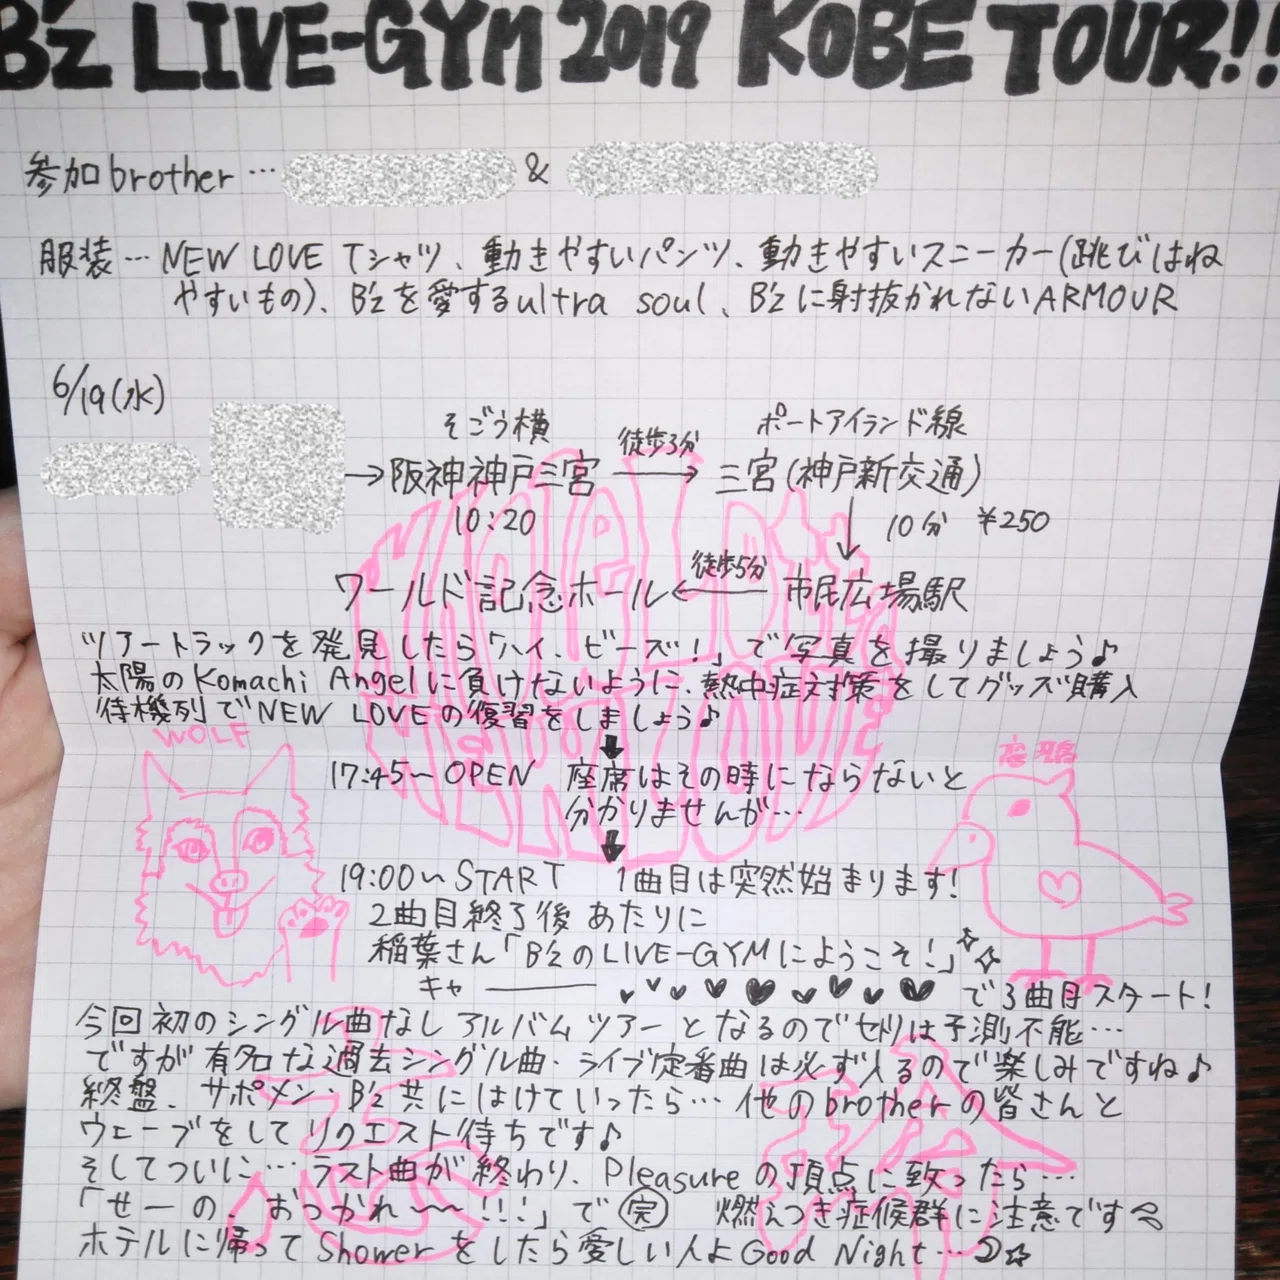 B'z LIVE-GYM 2019 KOBE TOUR!!
参加brother… &
服装…NEW LOVE Tシャツ、動きやすいパンツ、動きやすいスニーカー(跳びはね
やすいもの)、B'zを愛するultra soul、B'zに射抜かれないARMOUR
6/19(水)
そごう横 徒歩3分 ポートアイランド線
→阪神神戸三宮 → 三宮(神戸新交通)
10:20 ↓ 10分 ¥250
ワールド記念ホール ← 徒歩5分 市民広場駅
ツアートラックを発見したら「ハイ、ビーズ!」で写真を撮りましょう♪
太陽のKomachi Angelに負けないように、熱中症対策をしてグッズ購入
待機列でNEW LOVEの復習をしましょう♪
WOLF
17:45〜OPEN 座席はその時にならないと
分かりませんが…
19:00〜START 1曲目は突然始まります!
2曲目終了後あたりに
稲葉さん「B'zのLIVE-GYMにようこそ!」
キャーで3曲目スタート!
今回初のシングル曲なしアルバムツアーとなるのでセトリは予測不能…
ですが有名な過去シングル曲・ライブ定番曲は必ず入るので楽しみですね♪
終盤、サポメン・B'z共にはけていったら…他のbrotherの皆さんと
ウェーブをしてリクエスト待ちです♪
そしてついに…ラスト曲が終わり、Pleasureの頂点に致ったら…
「せーの、おつかれ〜〜!!!」で完 燃えつき症候群に注意です
ホテルに帰ってShowerをしたら愛しい人よGood Night…☆